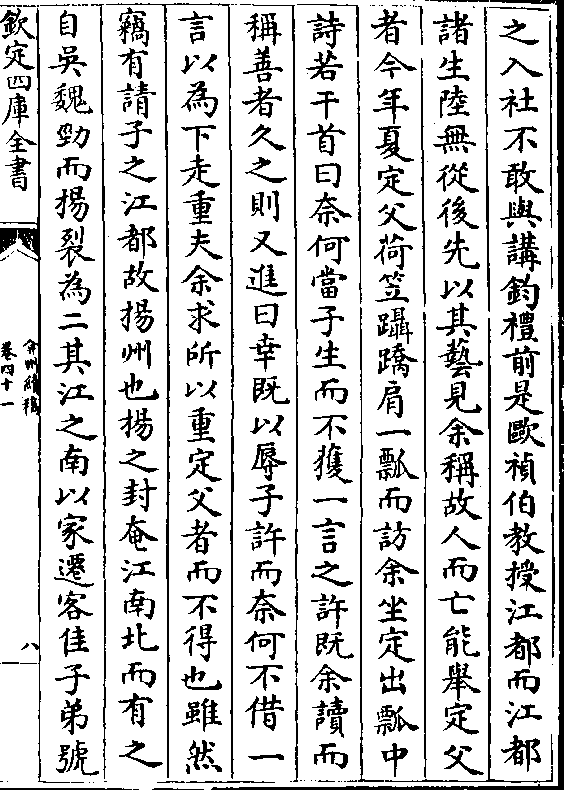 之入社不敢與講鈞禮前是歐禎伯教授江都而江都
諸生陸無從後先以其藝見余稱故人而亡能舉定父
者今年夏定父荷笠躡蹻肩一瓢而訪余坐定出瓢中
詩若干首曰奈何當子生而不獲一言之許既余讀而
稱善者久之則又進曰幸既以辱子許而奈何不借一
言以為下走重夫余求所以重定父者而不得也雖然
竊有請子之江都故揚州也揚之封奄江南北而有之
自吳魏勁而揚裂為二其江之南以家遷客佳子弟號
欽定四庫全書
弇州續稿
卷四十一
八